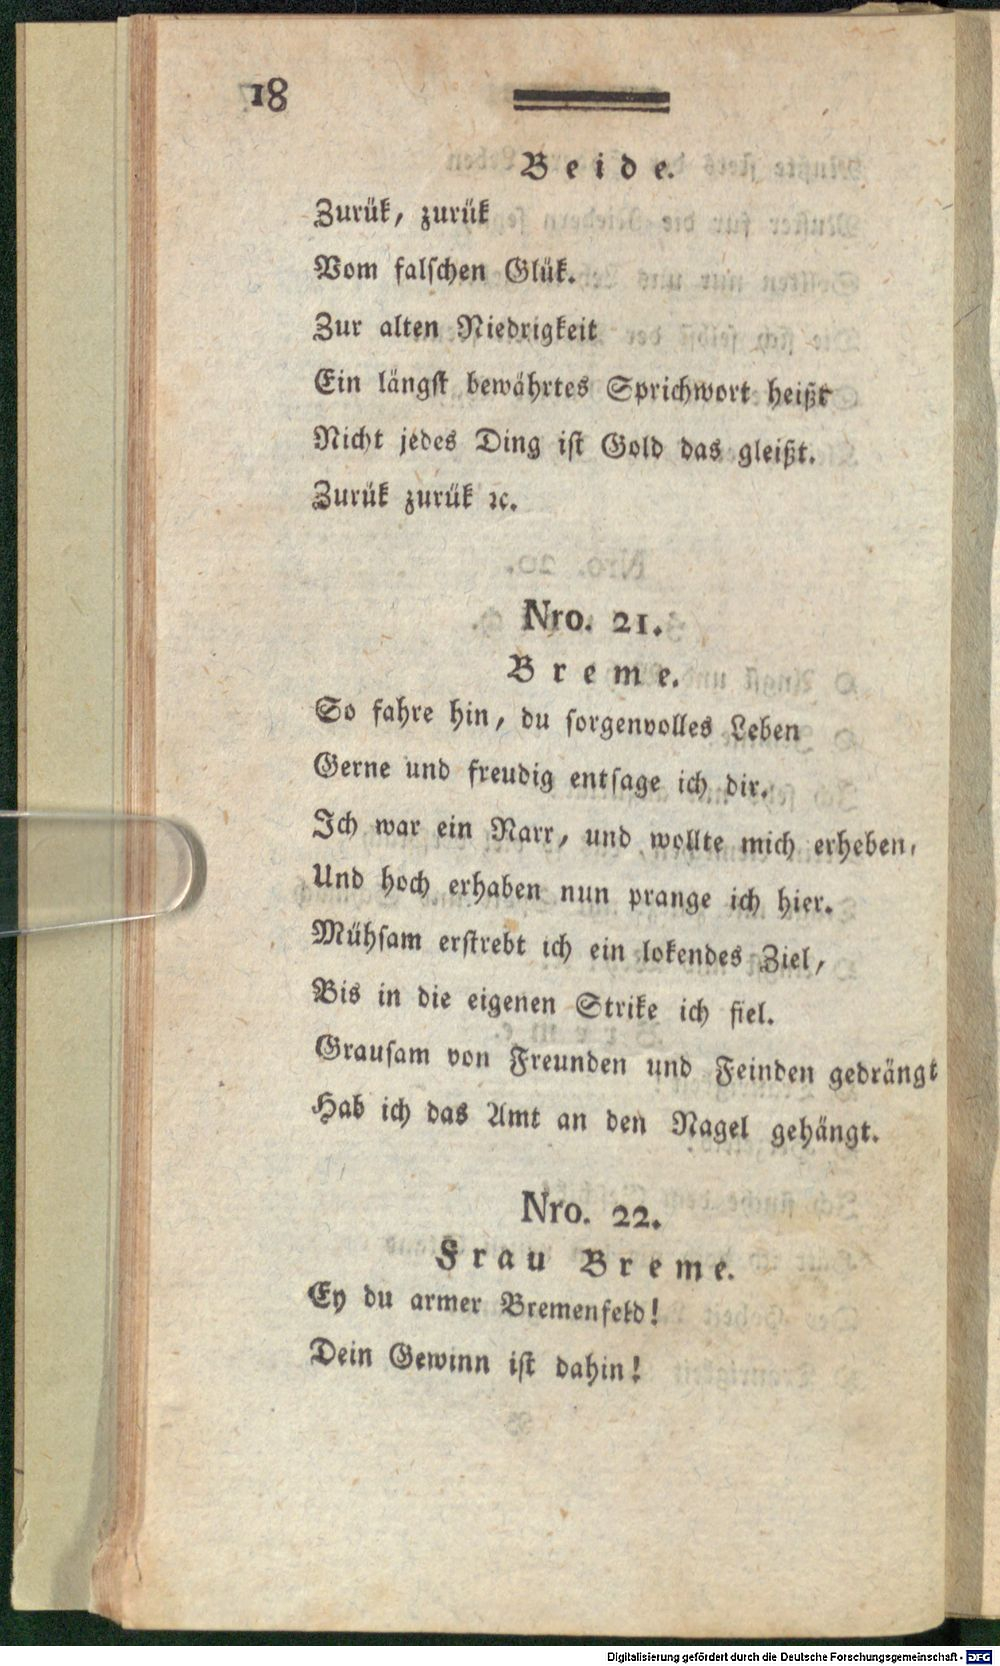 18
Beide.
Zurük, zurük
Vom falschen Glük.
Zur alten Niedrigkeit
Ein längst bewährtes Sprichwort heißt
Nicht jedes Ding ist Gold das gleißt.
Zurük zurük ꝛc.
Nro. 21.
Breme.
So fahre hin, du sorgenvolles Leben
Gerne und freudig entsage ich dir.
Ich war ein Narr, und wollte mich erheben,
Und hoch erhaben nun prange ich hier.
Mühsam erstrebt ich ein lokendes Ziel,
Bis in die eigenen Strike ich fiel.
Grausam von Freunden und Feinden gedrängt
Hab ich das Amt an den Nagel gehängt.
Nro. 22.
Frau Breme.
Ey du armer Bremenfeld!
Dein Gewinn ist dahin!
Digitalisierung gefördert durch die Deutsche Forschungsgemeinschaft - DFG